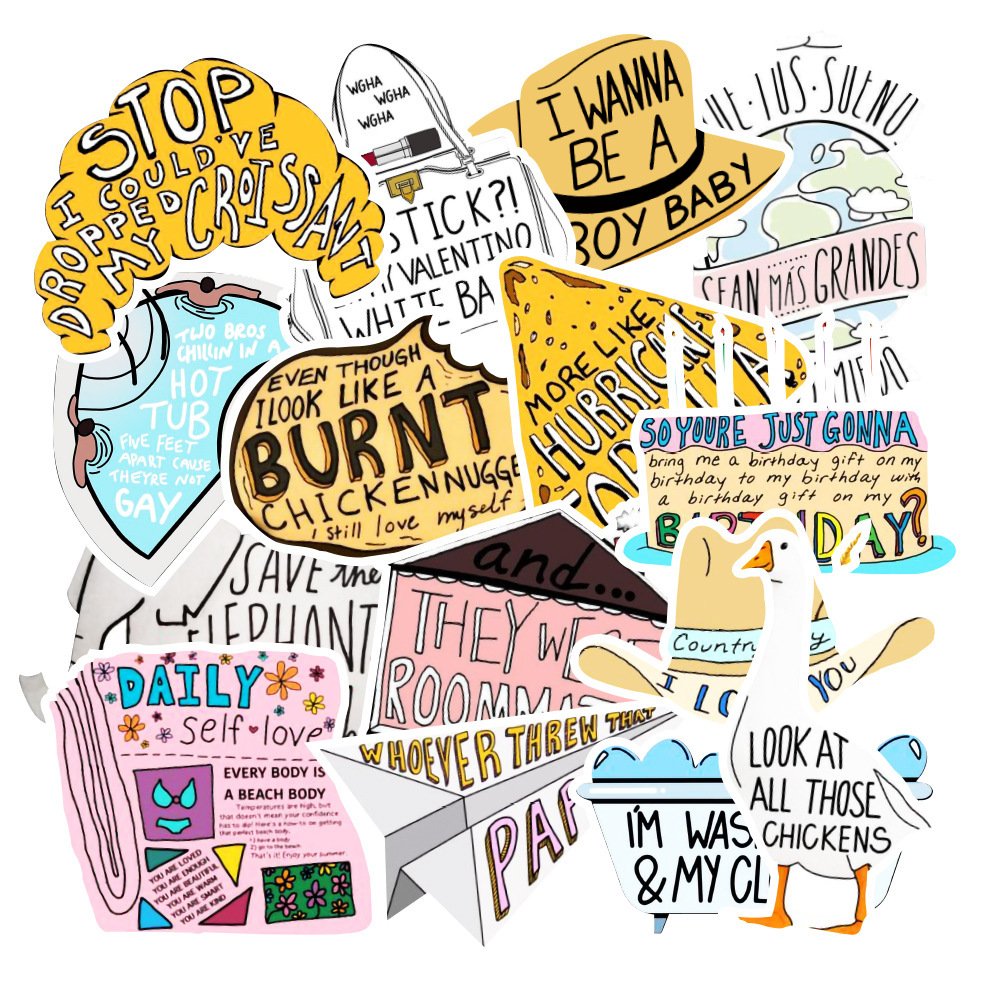 STOP
I COULD'VE
DROPPED
MY CROISSANT
WGHA
WGHA
WGHA
STICK?!
VALENTINO
WHITE BA
I WANNA
BE A
BOY BABY
TUS SUEÑO
SEAN MÁS GRANDES
TWO BROS
CHILLIN IN A
HOT
TUB
FIVE FEET
APART CAUSE
THEYRE NOT
GAY
EVEN THOUGH
I LOOK LIKE A
BURNT
CHICKEN NUGGE
i still love myself
MORE LIKE
HURRICANE
SO YOURE JUST GONNA
bring me a birthday gift on my
birthday to my birthday with
a birthday gift on my
BIRTHDAY?
SAVE the
ELEPHANT
and...
THEY WE
ROOMMA
Country
I LO YOU
DAILY
self love
EVERY BODY IS
A BEACH BODY
Temperatures are high, but
that doesn't mean your confidence
has to dip! Here's a how-to on getting
that perfect beach body.
1) have a body
2) go to the beach
That's it! Enjoy your summer.
YOU ARE LOVED
YOU ARE ENOUGH
YOU ARE BEAUTIFUL
YOU ARE WARM
YOU ARE SMART
YOU ARE KIND
WHOEVER THREW THAT
PAP
I'M WAS
& MY CL
LOOK AT
ALL THOSE
CHICKENS